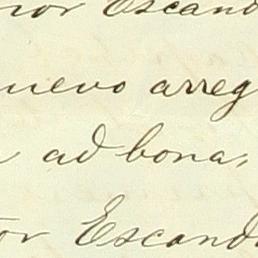 nor Escand
nuevo arreg
ad bona,
or Escand